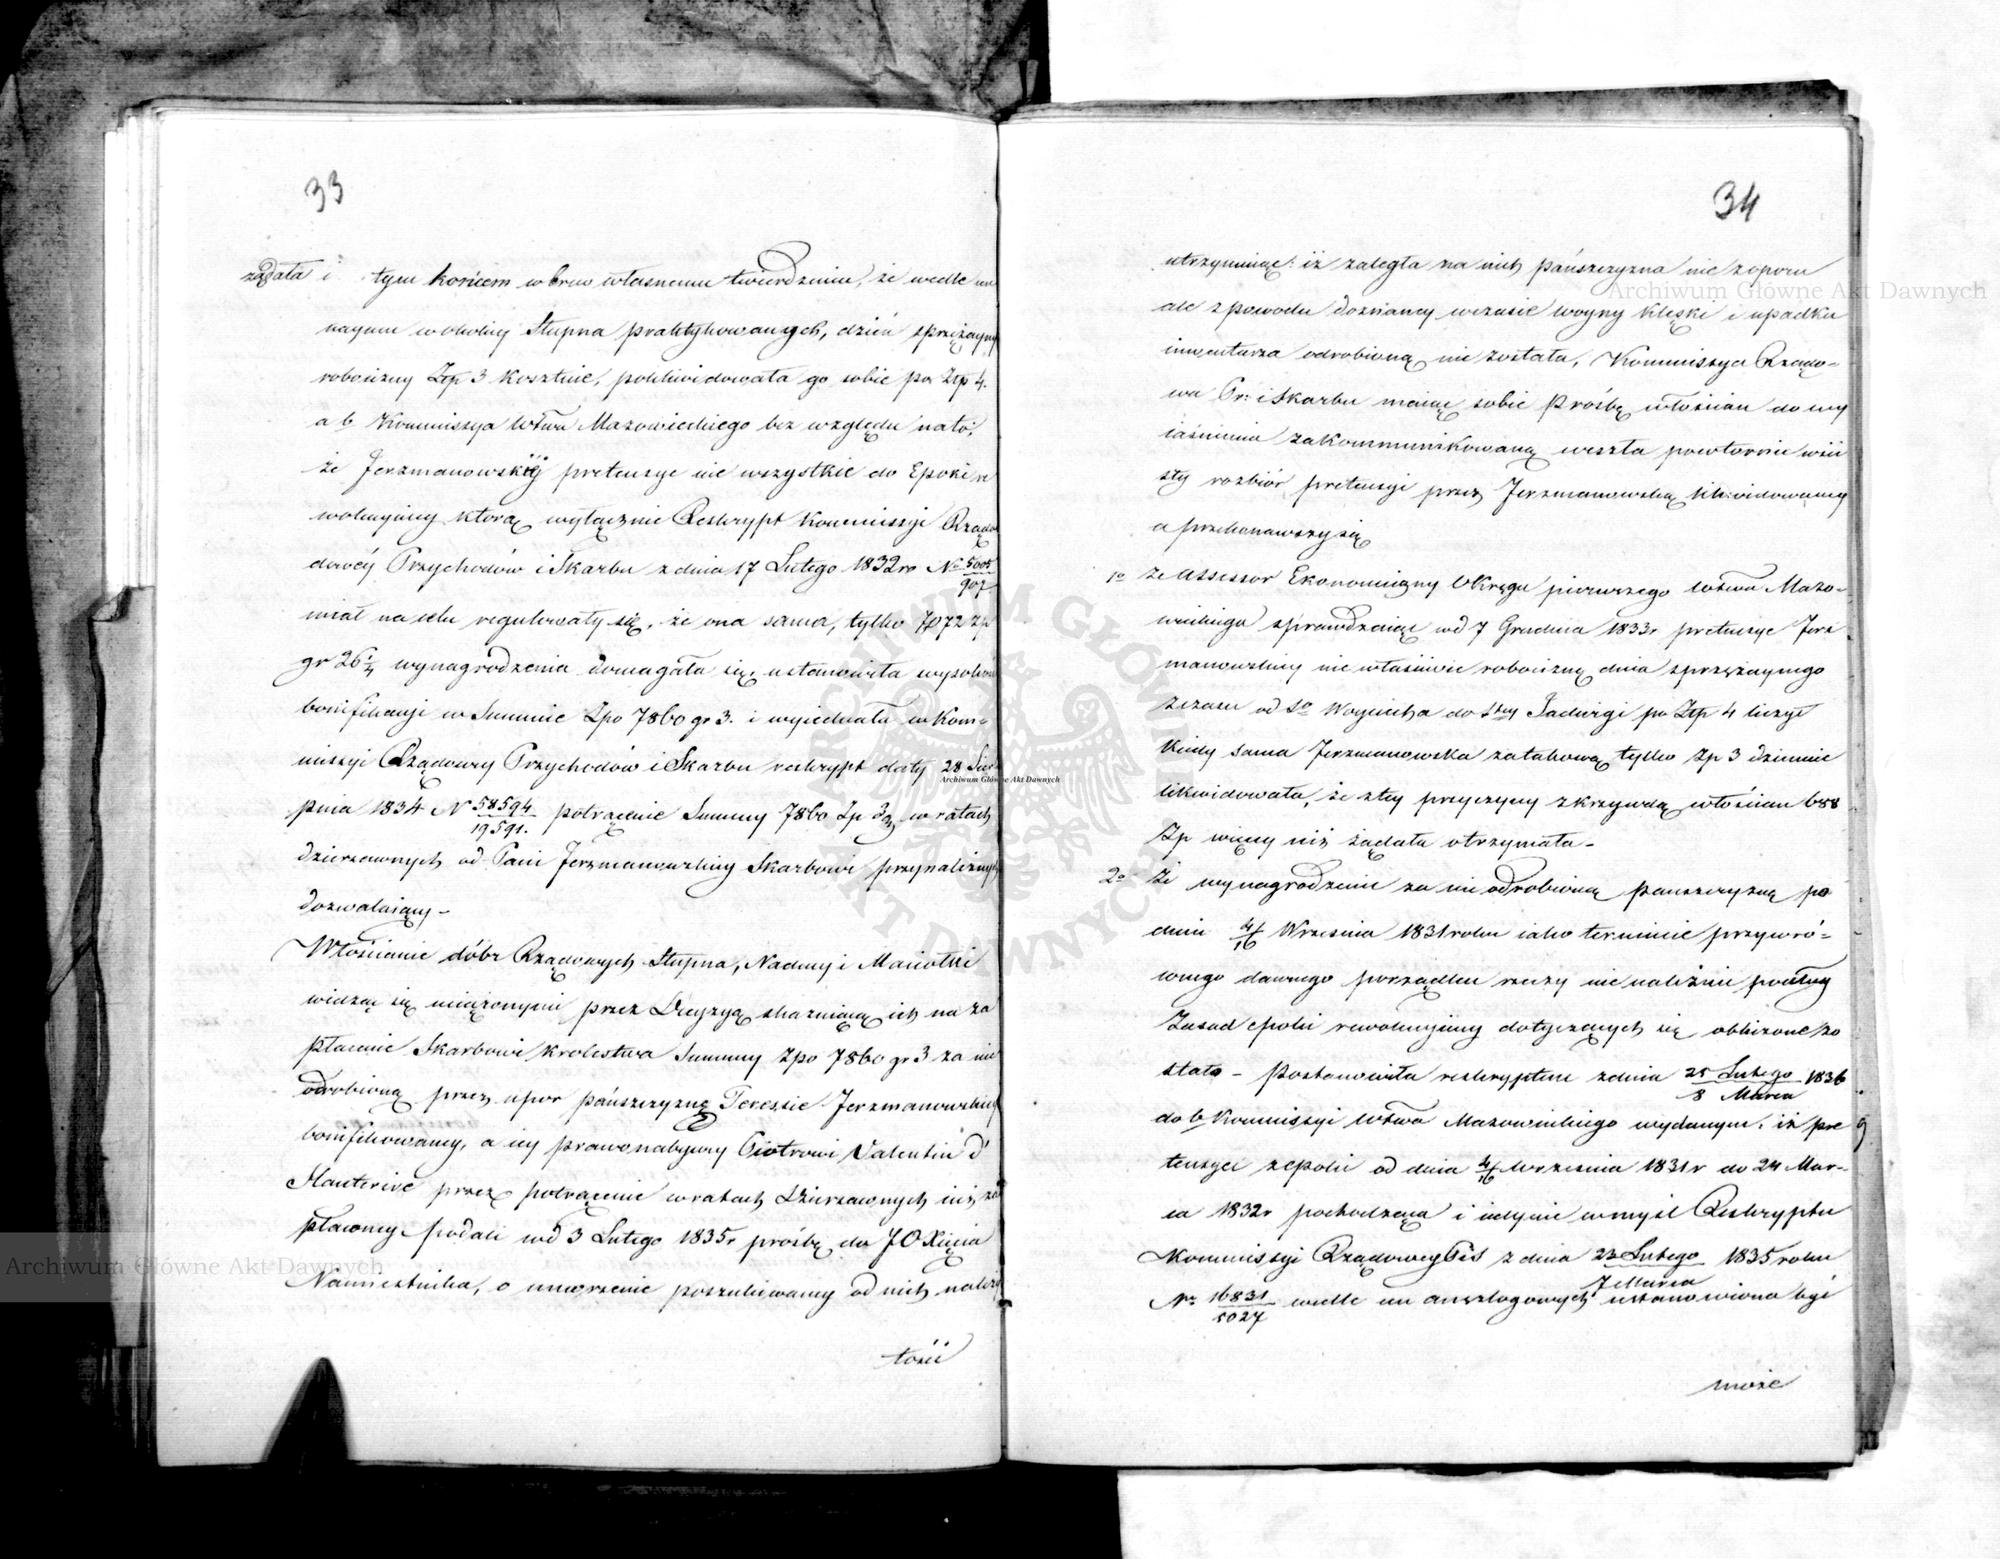 33
żądała i tym końcem wbrew własnemu twierdzeniu, że wedle um
nagum w okolicy Słupna praktykowanych, dzień sprzężayny
robocizny Złp 3 kosztuie, polikwidowała go sobie po Złp 4.
a b Kommissya Wtwa Mazowieckiego bez względu na to,
że Jerzmanowskiej pretensye nie wszystkie do Epoki re
wolucyiney którą wyłącznie Reskrypt Kommissyi Rządo
dowéy Przychodów i Skarbu z dnia 17 Lutego 1832 ro No 5005/907
miał na celu regulowały się, że ona sama, tylko 7,072 zp
gr 26 1/4 wynagrodzenia domagała się, ustanowiła wysokość
bonifikacyi w Summie Zpo 7860 gr 3. i wyiednała w Kom-
missyi Rządowey Przychodów i Skarbu reskrypt daty 28 Sier
pnia 1834 N 58594/19591. potrącenie Summy 7860 Zp 3 g w ratach
dzierżawnych od Pani Jerzmanowskiey Skarbowi przynależnych
dozwalaiący -
Włościanie dóbr Rządowych Słupna, Nadmy i Maciołki
widząc się uciążonymi przez Decyzyą skazuiącą ich na za
płacenie Skarbowi Krolestwa Summy Zpo 7860 gr 3 za nie
odrobioną przez upor pańszczyznę Teressie Jerzmanowskiey
bonifikowaney, a iey prawonabywcy Piotrowi Valentin d'
Hauterive przez potrącenie w ratach dzierżawnych iuż za
płaconey podali wd 3 Lutego 1835 r prośbę do JO Xięcia
Namiestnika, o umorzenie poszukiwaney od nich należy
tości
34
utrzymuiąc: iż zaległa na nich pańszczyzna nie z oporu
ale z powodu doznaney w czasie woyny klęski i upadku
inwentarza odrobioną nie została, Kommissya Rządo-
wa Pr: i Skarbu maiąc sobie prośbę włościan do wy
iaśnienia zakommunikowaną weszła powtornie w ści
sły rozbiór pretensyi przez Jerzmanowską likwidowaney
a przekonawszy się
1o że Assessor Ekonomiczny Okręgu pierwszego Wtwa Mazo-
wieckiego sprawdzaiąc wd 7 Grudnia 1833 r pretensye Jerz
manowskiey nie właściwie robociznę dnia sprzężaynego
z czasu od So Woyciecha do Stey Jadwigi po Złp 4 liczył
kiedy sama Jerzmanowska za takową tylko Zp 3 dziennie
likwidowała, że z tey przyczyny z krzywdą włościan 688
Zp więcey niż żądała otrzymała -
2o Że wynagrodzenie za nie odrobioną pańszczyznę po
dniu 4/16 Września 1831 roku iako terminie przywró-
conego dawnego porządku rzeczy nie należnie podług
Zasad epoki rewolucyiney dotyczących się obliczone zo
stało - postanowiła reskryptem z dnia 25 Lutego/8 Marca 1836
do b Kommissyi Wtwa Mazowieckiego wydanym, iż pre
tensye z epoki od dnia 4/16 Września 1831 r do 24 Mar-
ca 1832 r pochodząca i iedynie w myśl Reskryptu
Kommissyi Rządowey PiS z dnia 23 Lutego/7 Marca 1835 roku
No 16831/5027 wedle cen anszlagowych ustanowiona być
może
Archiwum Główne Akt Dawnych
Archiwum Główne Akt Dawnych
Archiwum Główne Akt Dawnych
ARCHIWUM GŁÓWNE AKT DAWNYCH